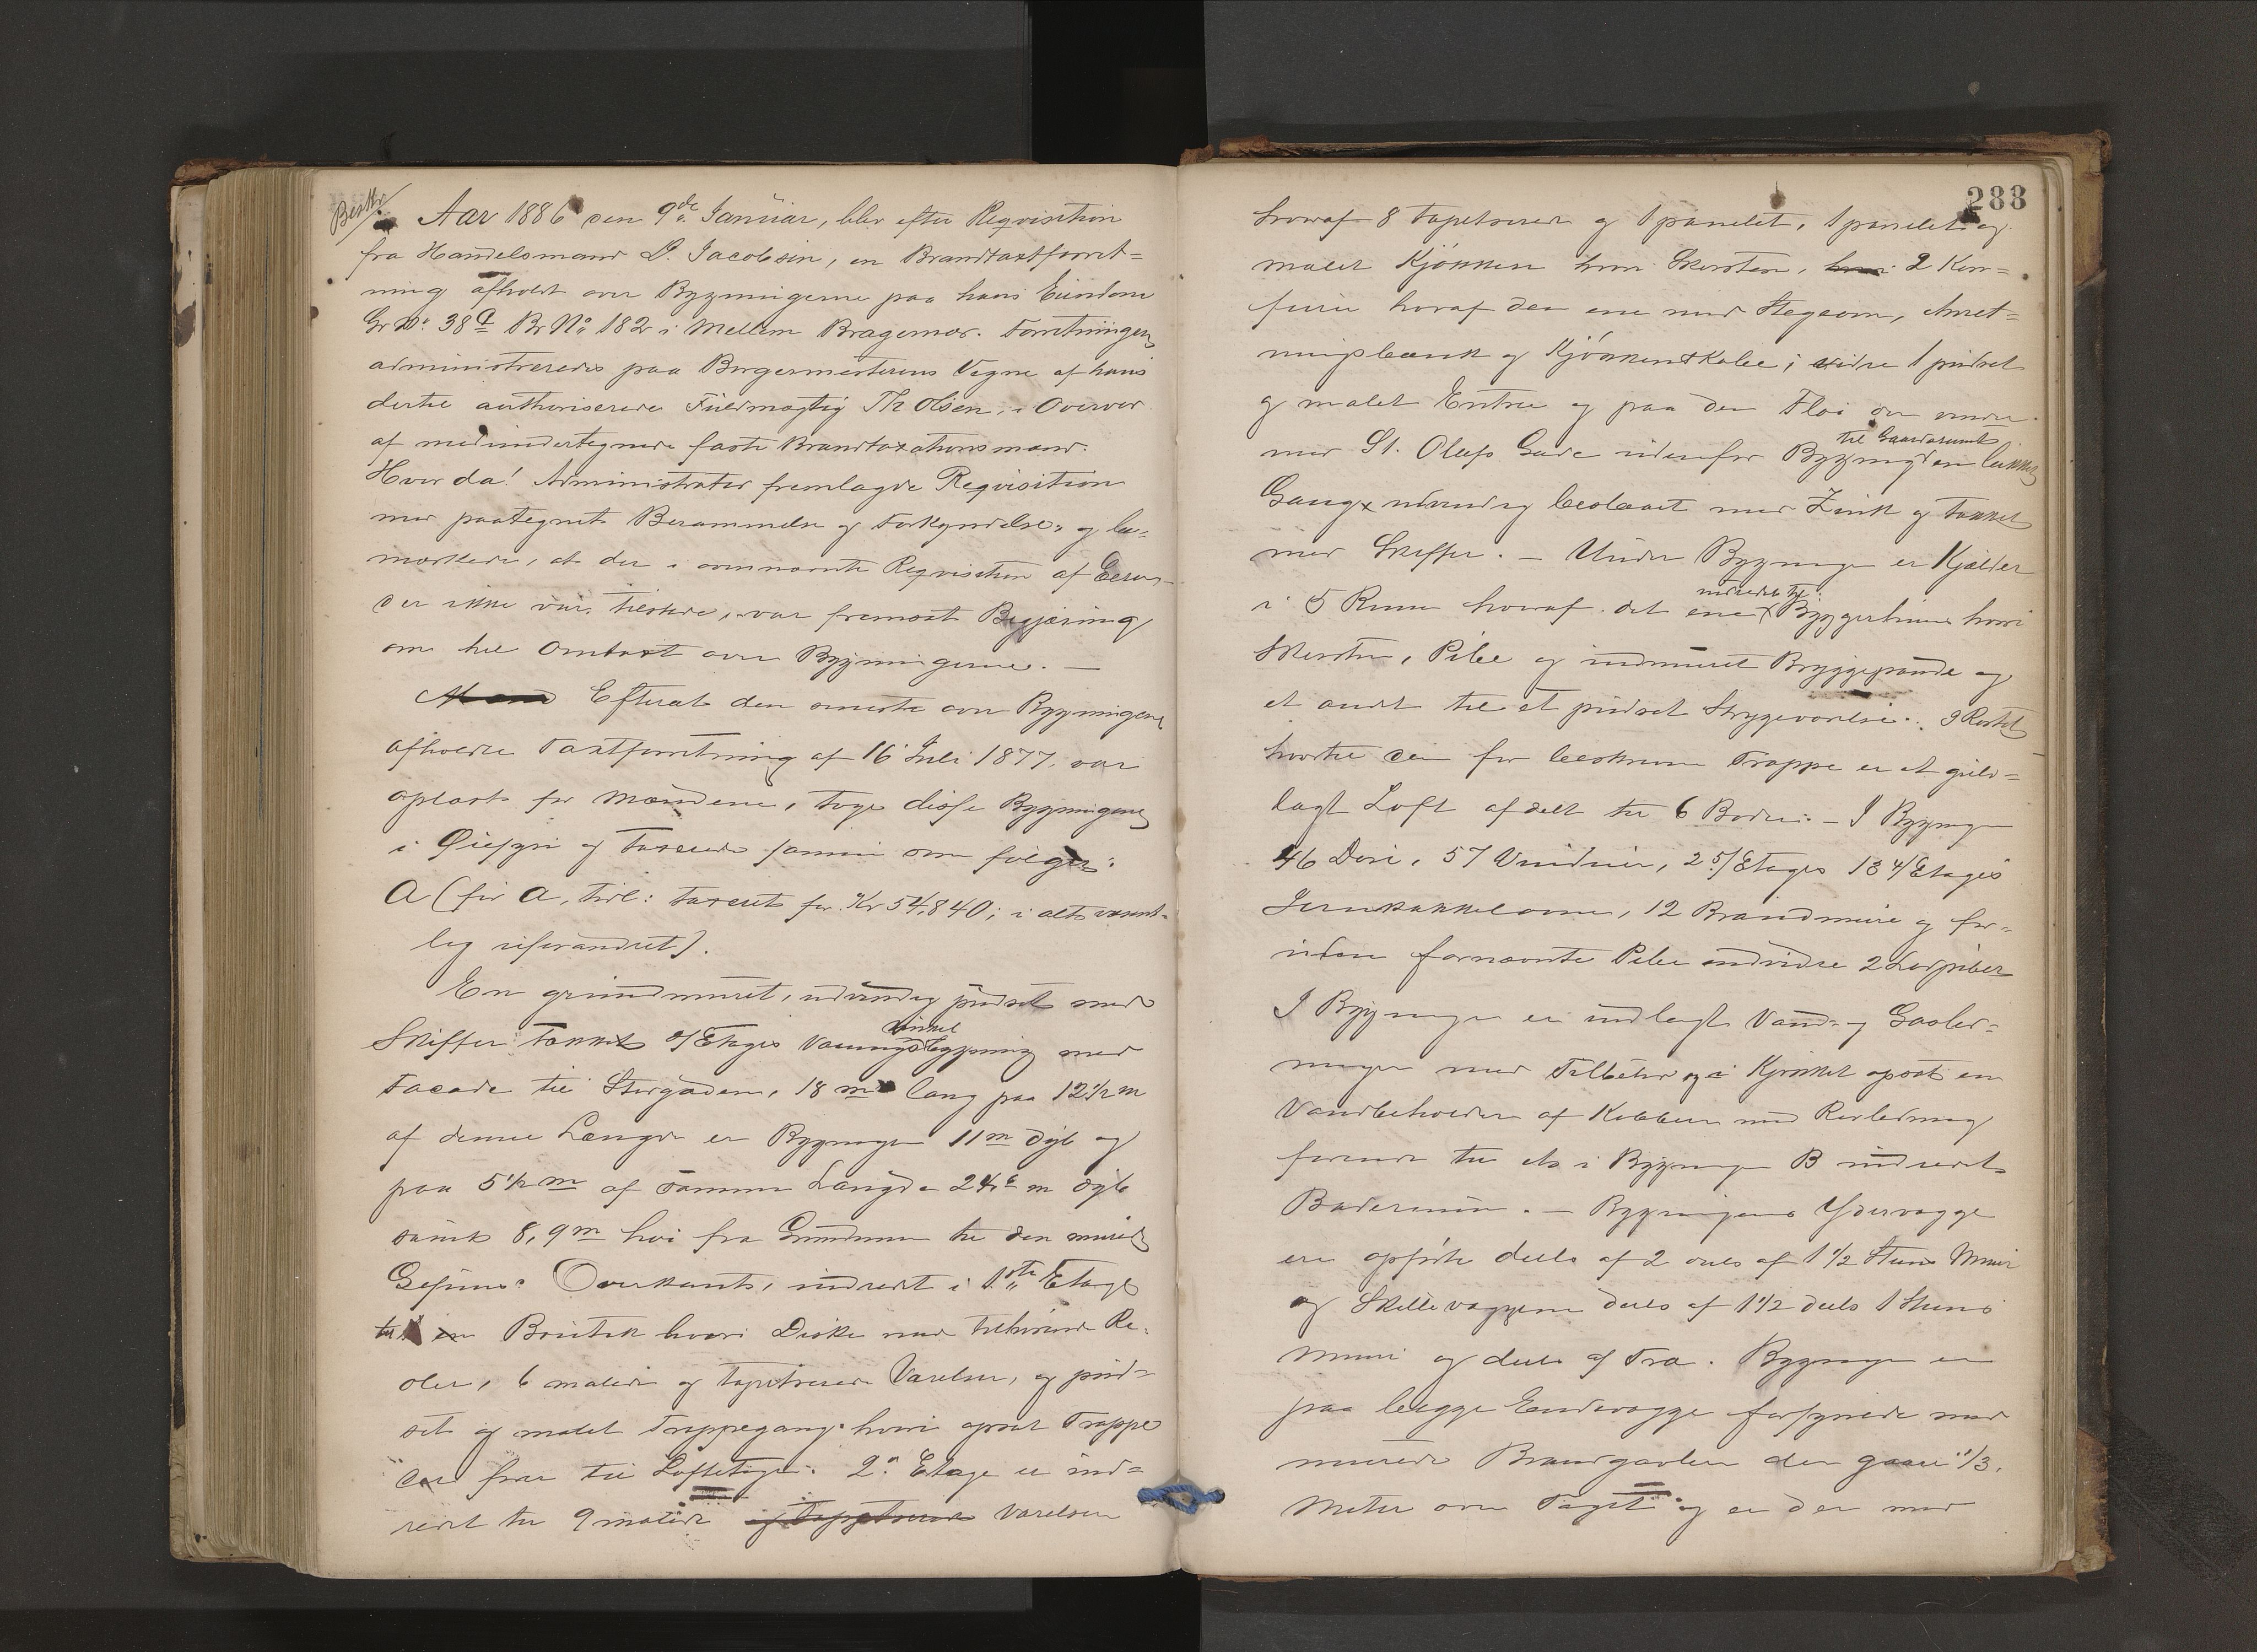 Beskr.
Aar 1886 den 9de Januar, blev efter Reqvisition
fra Handelsmand D. Jacobsen, en Brandtaxtforret=
ning afholdt over Bygningerne paa hans Eiendom
Gr No: 38a Br No: 182 i Mellem Bragernæs. Forretningen
administreredes paa Borgermesterens Vegne af hans
dertil authoriserede Fuldmægtig Th Olsen, i Overvær
af medundertegnede faste Brandtaxationsmænd.
Hvor da! Administrator fremlagde Reqvisition
med paategnet Berammelse og Forkyndelse, og be=
mærkede, at der i ovennævnte Reqvisition af Eeren,
der ikke var tilstede, var fremsat Begjæring
om hel Omtaxt over Bygningerne. —
Efterat den seneste over Bygningerne
afholdte Taxtforretning af 16 Juli 1877, var
oplæst for Mændene, toges disse Bygningerne
i Øiesyn og taxerede samme som følger:
A (før A, tidl: taxeret for Kr 54,840; i alt væsent=
lig uforandret).
En grundmuret, udvendig pudset med
Skiffer takket 2/Etages Vaanings vinkel bygning med
Facade til Storgaden, 18 m lang paa 12 1/2 m
af denne Længde er Bygningen 11 m dyb og
paa 5 1/2 m af samme Længde m dyb
samt 8,9 m høi fra Grunden til den murede
Gesims Overkant, indredt i 1ste Etage
til en Boutik hvori Diske med tilhørende Re=
oler, 6 malede og tapetserede Værelser, og pud=
set og malet Trappegang hvori opsat Trappe
der fører til Loftetagen. 2n Etage er ind=
redt til 9 malede og tapetserede Værelser
288
hvoraf 8 tapetserede og 1 panelet, 1 panelet og
malet Kjøkken hvori Skorsten, hvori 2 Kom=
furer hvoraf den ene med Stegeovn, Anret=
ningsbænk og Kjøkkenskabe; videre 1 pudset
og malet Entree og paa den Fløi der vender
mod St. Olafs Gade udenfor Bygningen en lukket
til Gaardsrummet
Gang x udvendig beslaaet med Zink og takket
med Skiffer. — Under Bygningen er Kjælder
i 5 Rum hvoraf det ene x Bryggerhuus hvori
indredet til
Skorsten, Pibe og indmuret Bryggepande og
et andet til et pudset Strygeværelse. I Røstet
hvortil den før beskrevne Trappe er et gulv=
lagt Loft afdelt til 6 Boder. — I Bygningen
46 Døre, 57 Vinduer, 2 5/Etages 13 4/Etages
Jernkakkelovne, 12 Brandmure og for=
uden fornævnte Pibe endvidere 2 Luftpiber
I Bygningen er indlagt Vand- og Gasled=
ninger med Tilbehør og i Kjøkkenet opsat en
Vandbeholder af Kobber med Rørledning
førende til et i Bygningen B indredet
Baderum. — Bygningens Ydervægge
ere opførte deels af 2 deels af 1 1/2 Steens Muur
og Skillevæggene deels af 1 1/2 deels 1 Steens
Muur og deels af Træ. Bygningen er
paa begge Endevægge forsynede med
murede Brandgavler der gaaer 1/3
Meter over Taget og er den med